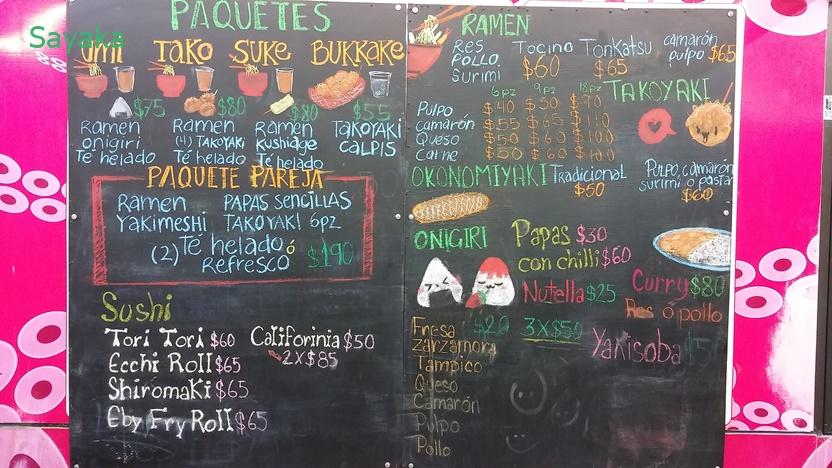 Sayaka
PAQUETES
Umi TaKO SuKe BUKKAKE
$75 $80 $80 $55
Ramen onigiri Té helado
Ramen (4) TAKOYAKI Té helado
Ramen Kushiage Té helado
TAKOYAKI CALPIS
PAQUETE PAREJA
Ramen PAPAS Sencillas
Yakimeshi TAKOYAKI 6pz
(2) Té helado ó Refresco $190
Sushi
Tori Tori $60 Califorinia $50
2X$85
Ecchi Roll $65
Shiromaki $65
Eby Fry Roll $65
RAMEN
Res Pollo Surimi $60
Tocino TonKatsu $65
camarón pulpo $65
TAKOYAKI
6pz 9pz 18pz
Pulpo $40 $50
Camarón $55 $65
Queso $50 $60 $100
Carne $50 $60 $100
OKONOMIYAKI Tradicional $50
Pulpo, camarón surimi o pasta $60
ONIGIRI
Papas $30
con chilli $60
Nutella $25
Curry $80
Res ó pollo
$20 3X$50
Yakisoba
Fresa
Zarzamora
Tampico
Queso
Camarón
Pulpo
Pollo